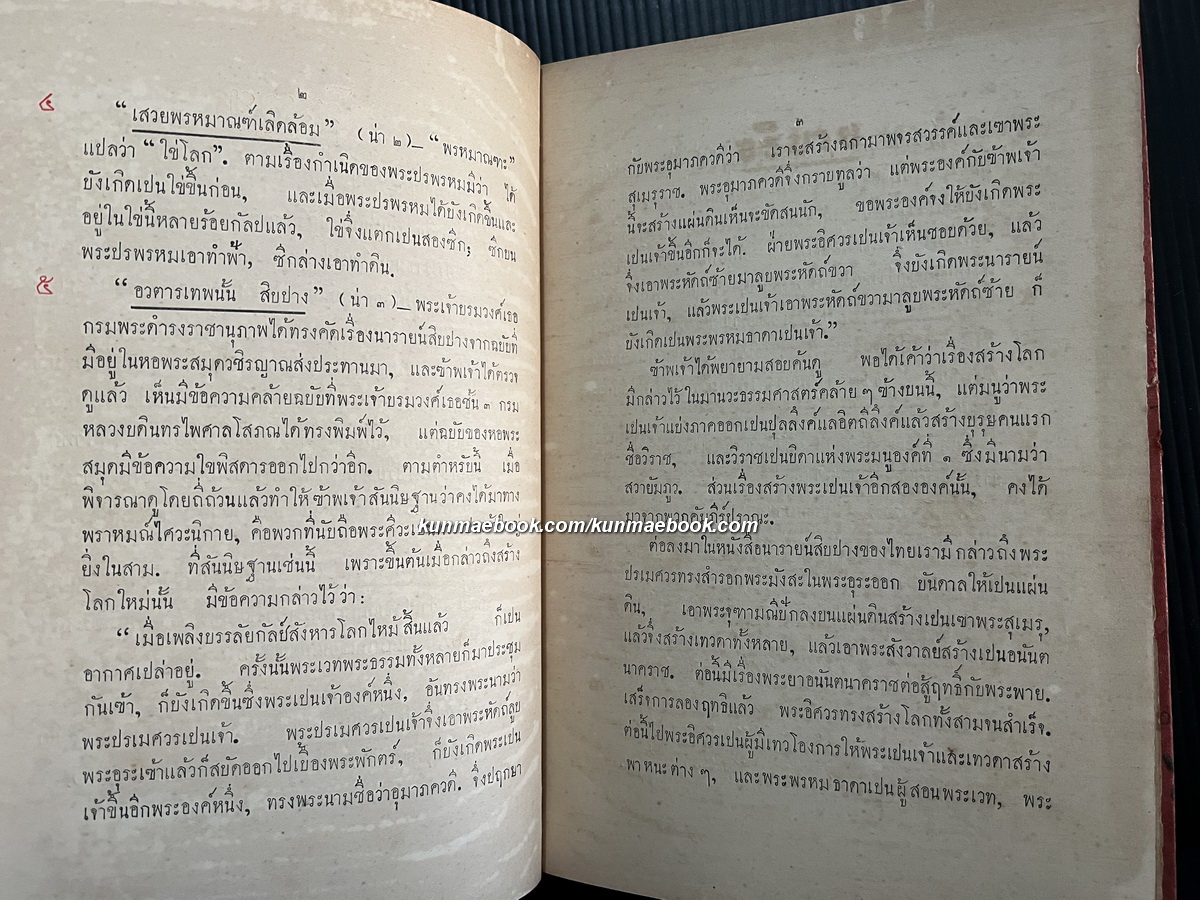 ๒
๔ “เสวยพรหมาณฑ์เลิดล้อม” (น่า ๒)—“พรหมาณฑะ”
แปลว่า “ไข่โลก”. ตามเรื่องกำเนิดของพระปรพรหมมีว่า ได้
บังเกิดเปนไข่ขึ้นก่อน, และเมื่อพระปรพรหมได้บังเกิดขึ้นและ
อยู่ในไข่นี้หลายร้อยกัลปแล้ว, ไข่จึ่งแตกเปนสองซีก; ซีกบน
พระปรพรหมเอาทำฟ้า, ซีกล่างเอาทำดิน.
๕ “อวตารเทพนั้น สิบปาง” (น่า ๓)—พระเจ้าบรมวงศ์เธอ
กรมพระดำรงราชานุภาพได้ทรงคัดเรื่องนารายน์สิบปางจากฉบับที่
มีอยู่ในหอพระสมุดวชิรญาณส่งประทานมา, และข้าพเจ้าได้ตรวจ
ดูแล้ว เห็นมีข้อความคล้ายฉบับที่พระเจ้าบรมวงศ์เธอชั้น ๓ กรม
หลวงบดินทรไพศาลโสภณได้ทรงพิมพ์ไว้, แต่ฉบับของหอพระ
สมุดมีข้อความไขพิสดารออกไปกว่าอีก. ตามตำหรับนี้ เมื่อ
พิจารณาดูโดยถี่ถ้วนแล้วทำให้ข้าพเจ้าสันนิษฐานว่าคงได้มาทาง
พราหมณ์ไศวะนิกาย, คือพวกที่นับถือพระศิวะเปน
ยิ่งในสาม. ที่สันนิษฐานเช่นนี้ เพราะขึ้นต้นเมื่อกล่าวถึงสร้าง
โลกใหม่นั้น มีข้อความกล่าวไว้ว่า:
“เมื่อเพลิงบรรลัยกัลย์สังหารโลกไหม้สิ้นแล้ว ก็เปน
อากาศเปล่าอยู่. ครั้งนั้นพระเวทพระธรรมทั้งหลายก็มาประชุม
กันเข้า, ก็บังเกิดขึ้นซึ่งพระเปนเจ้าองค์หนึ่ง, อันทรงพระนามว่า
พระปรเมศวรเปนเจ้า. พระปรเมศวรเปนเจ้าจึ่งเอาพระหัดถ์ลูบ
พระอุระเข้าแล้วก็สบัดออกไปเบื้องพระพักตร์, ก็บังเกิดพระเปน
เจ้าขึ้นอีกพระองค์หนึ่ง, ทรงพระนามชื่อว่าอุมาภควดี. จึ่งปฤกษา
๓
กับพระอุมาภควดีว่า เราจะสร้างฉกามาพจรสวรรค์และเขาพระ
สุเมรุราช. พระอุมาภควดีจึ่งกราบทูลว่า แต่พระองค์กับข้าพเจ้า
นี้จะสร้างแผ่นดินเห็นจะขัดสนนัก, ขอพระองค์จงให้บังเกิดพระ
เปนเจ้าขึ้นอีกก็จะได้. ฝ่ายพระอิศวรเปนเจ้าเห็นชอบด้วย, แล้ว
จึ่งเอาพระหัดถ์ซ้ายมาลูบพระหัดถ์ขวา จึ่งบังเกิดพระนารายน์
เปนเจ้า, แล้วพระเปนเจ้าเอาพระหัดถ์ขวามาลูบพระหัดถ์ซ้าย ก็
บังเกิดเปนพระพรหมธาดาเปนเจ้า.”
ข้าพเจ้าได้พยายามสอบค้นดู พอได้เค้าว่าเรื่องสร้างโลก
มีกล่าวไว้ในมานวะธรรมศาสตร์คล้าย ๆ ข้างบนนี้, แต่มนูว่าพระ
เปนเจ้าแบ่งภาคออกเปนปุลลิงค์แลอิตถีลิงค์แล้วสร้างบุรุษคนแรก
ชื่อวิราช, และวิราชเปนบิดาแห่งพระมนูองค์ที่ ๑ ซึ่งมีนามว่า
สวายัมภูว. ส่วนเรื่องสร้างพระเปนเจ้าอีกสององค์นั้น, คงได้
มาจากพวกคัมภีร์ปุราณะ.
kunmaebook.com/kunmaebook.com
ต่อลงมาในหนังสือนารายน์สิบปางของไทยเรามีกล่าวถึงพระ
ปรเมศวรทรงสำรอกพระมังสะในพระอุระออก บันดาลให้เปนแผ่น
ดิน, เอาพระจุฑามณีปักลงบนแผ่นดินสร้างเปนเขาพระสุเมรุ,
แล้วจึ่งสร้างเทวดาทั้งหลาย, แล้วเอาพระสังวาลย์สร้างเปนอนันต
นาคราช. ต่อนี้มีเรื่องพระยาอนันตนาคราชต่อสู้ฤทธิ์กับพระพาย.
เสร็จการลองฤทธิแล้ว พระอิศวรทรงสร้างโลกทั้งสามจนสำเร็จ.
ต่อนี้ไปพระอิศวรเปนผู้มีเทวโองการให้พระเปนเจ้าและเทวดาสร้าง
พาหนะต่าง ๆ, และพระพรหมธาดาเปนผู้สอนพระเวท, พระ